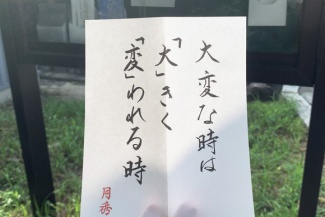 大変な時は
「大」きく
「変」われる時
月秀